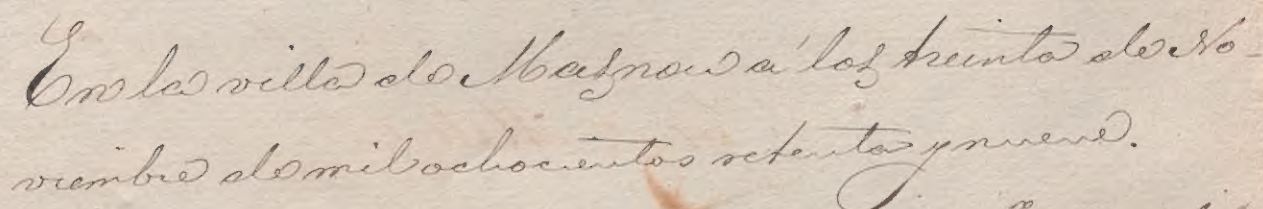 En la villa de Masnou á los treinta de No-
viembre de mil ochocientos setenta y nueve.